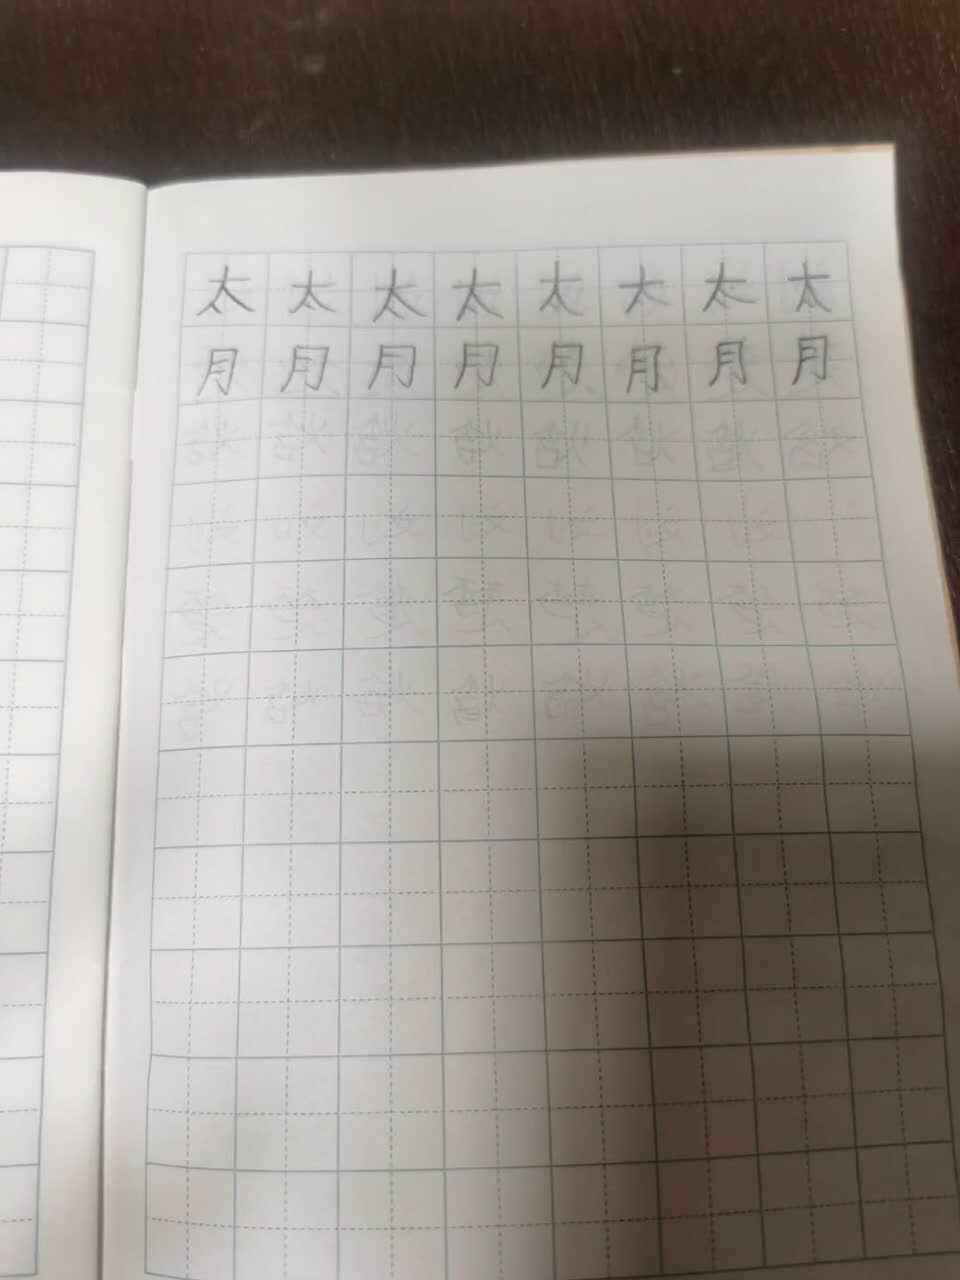 太太太太太太太太
月月月月月月月月